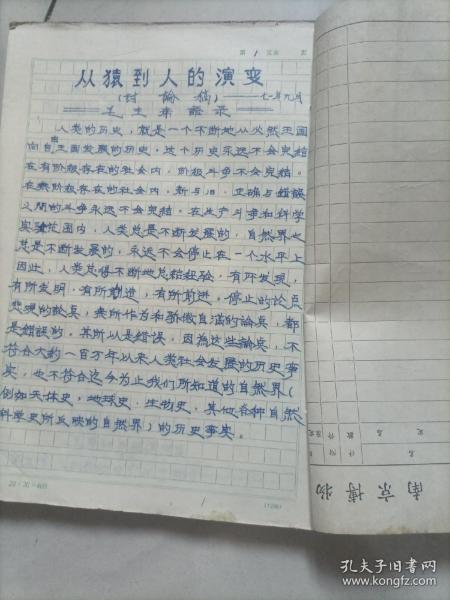 第 1 页共 页
从猿到人的演变
(讨論稿) ——七一年九月
毛主席語录
人类的历史，就是一个不断地从必然王国
向自由王国发展的历史。这个历史永远不会完结
在有阶级存在的社会内，阶级斗争不会完结。
在无阶级存在的社会内，新与旧、正确与錯誤
之間的斗争永远不会完结。在生产斗争和科学
实验范围内，人类总是不断发展的，自然界也
总是不断发展的，永远不会停止在一个水平上
因此，人类总得不断地总结经验，有所发现，
有所发明，有所創造，有所前进。停止的论点
悲观的論点，無所作为和骄傲自满的論点，都
是錯誤的。其所以是错误，因為这些論点，不
符合大約一百万年以来人类社会发展的历史事
实，也不符合迄今为止我们所知道的自然界(
例如天体史，地球史，生物史，其他各种自然
科学史所反映的自然界)的历史事实。
20×20=400
1
南京博物
孔夫子旧书网
www.kongfz.com